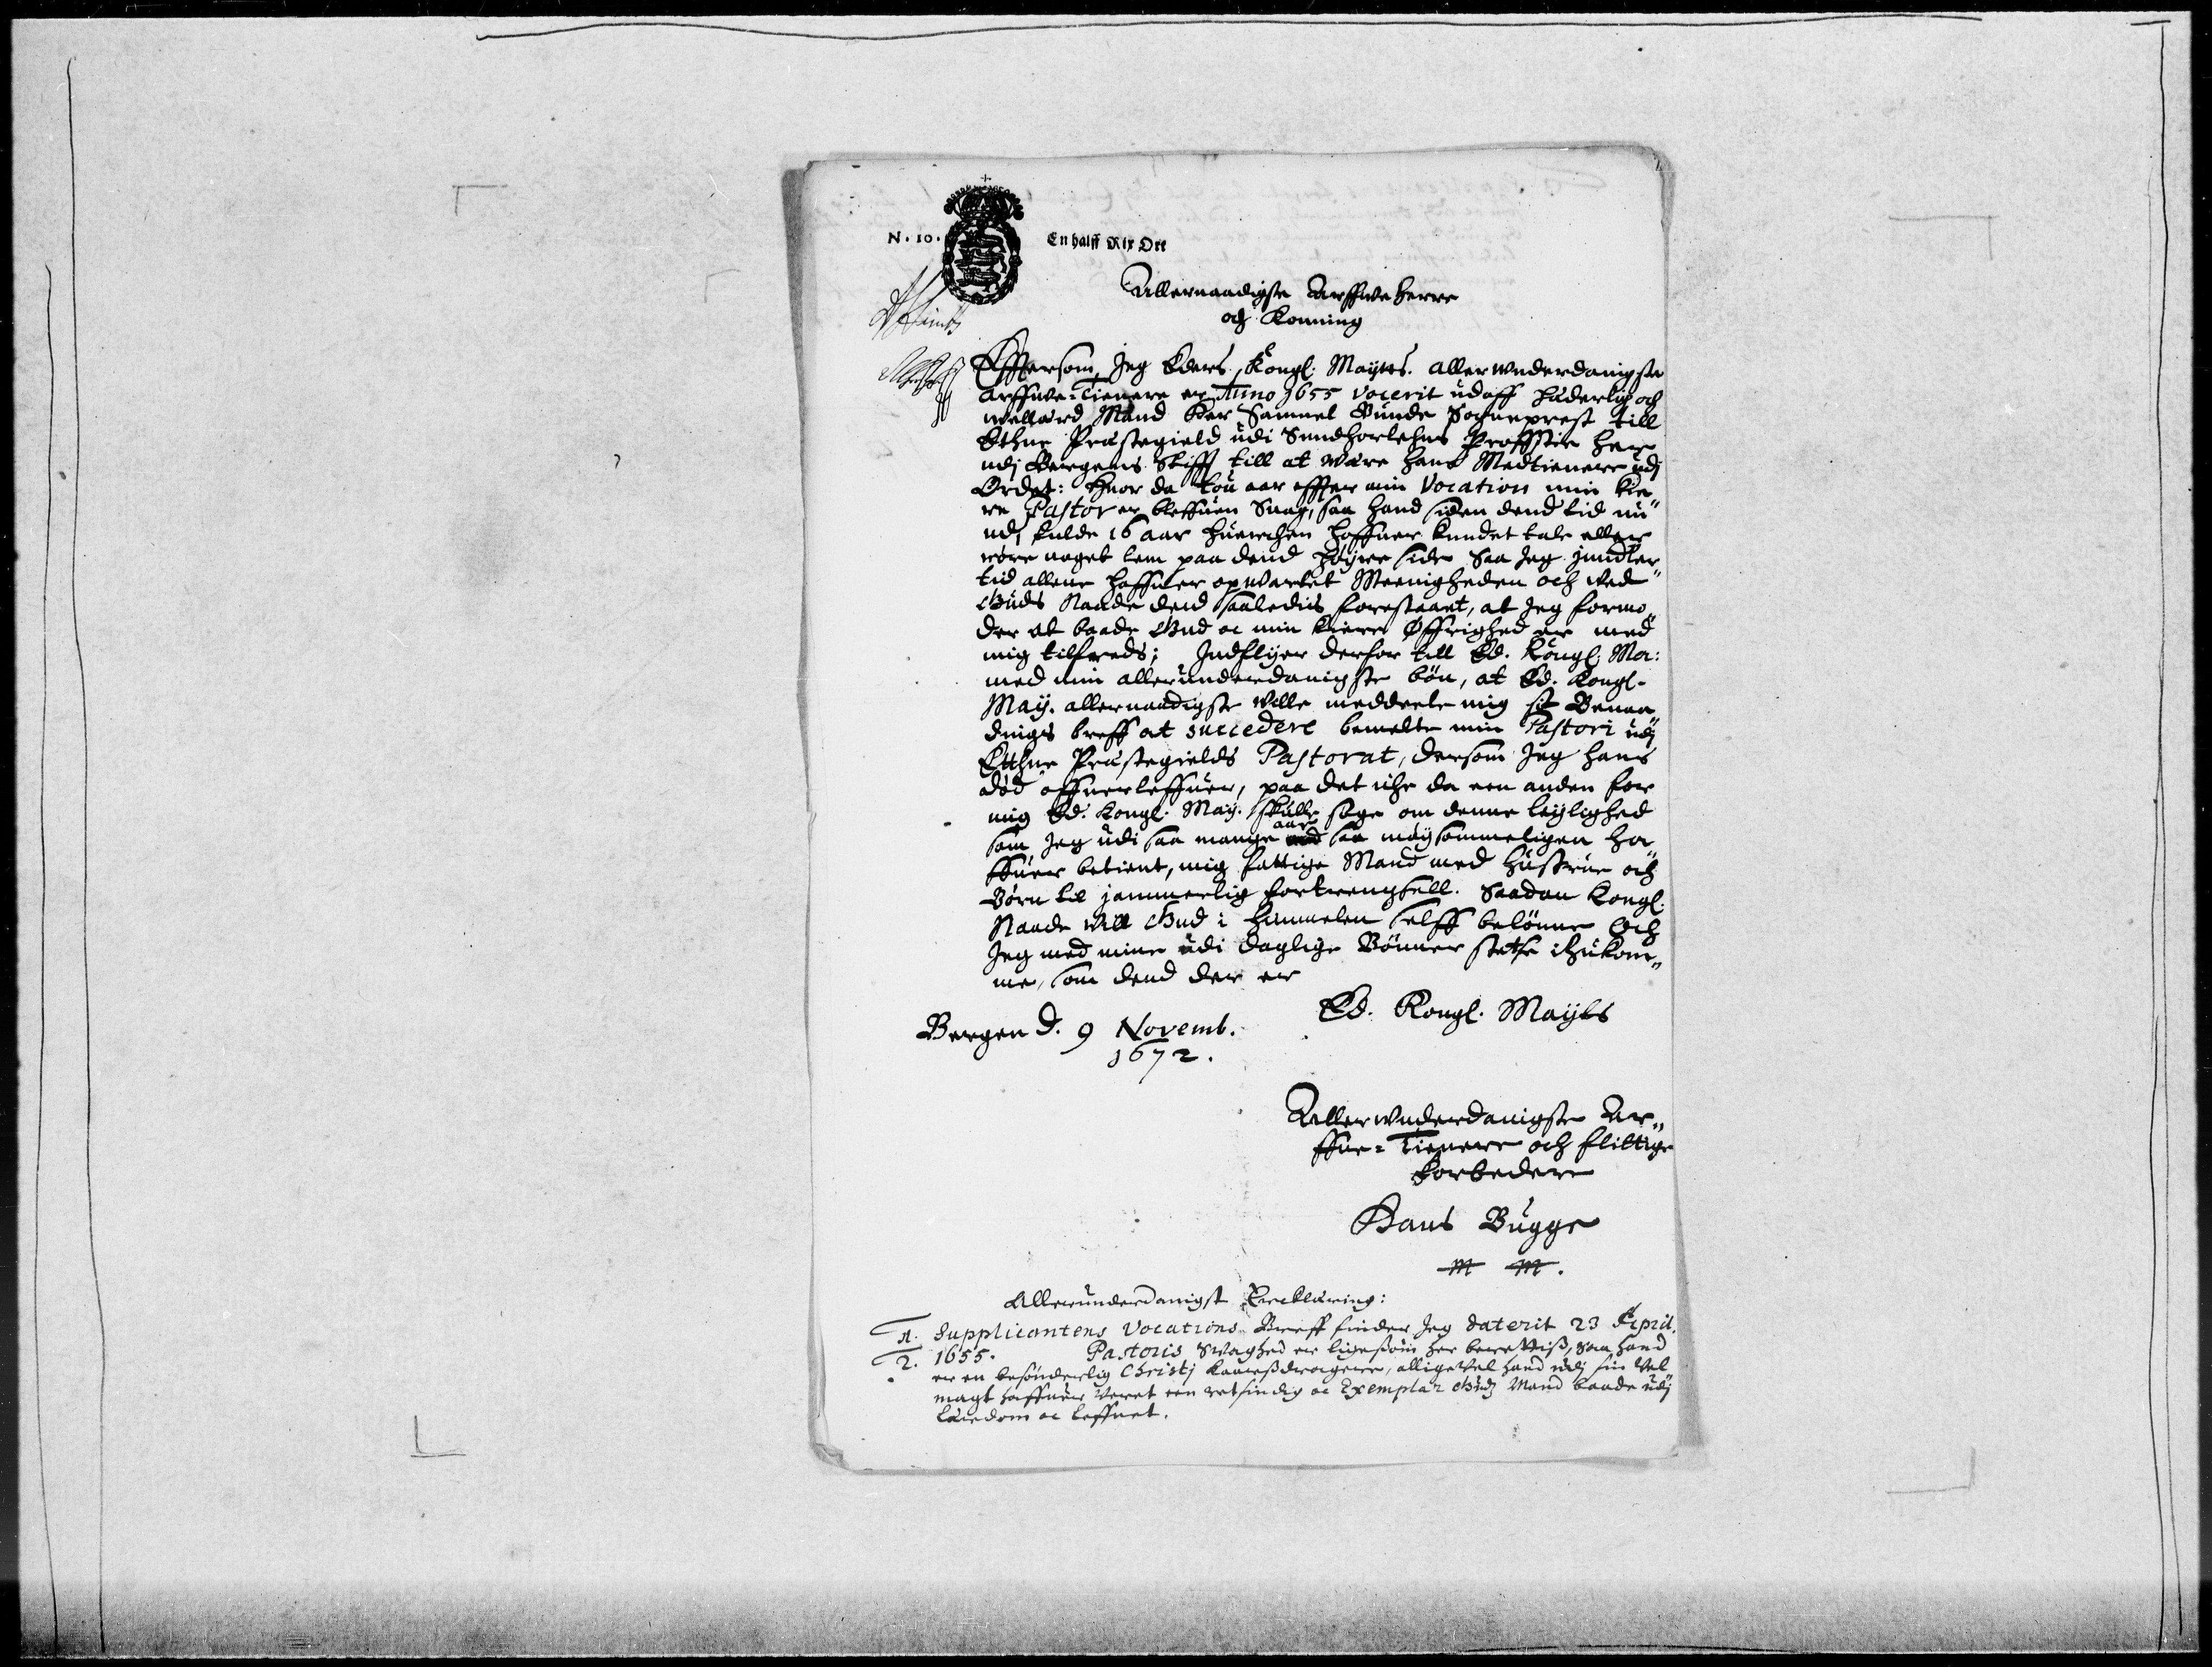 N. 10. En halff Rix Ort
Allernaadigste Arffwe Herre
och Konning
Efftersom Jeg Eders Kongl. Maytts. allerwnderdanigste
Arffwe-Tienere er Anno 1655 vocerit udaff hæderlig och
wellærd Mand Her Samuel Bunde Sogneprest till
Ethne Præstegield udi Sundhorlehns Proffstie her
udj Bergens Stifft till at være hans Medtienere udj
Ordet: Huor da tou aar effter min Vocation min kie„
re Pastor er bleffuen Suag, saa hand siden dend tid nu
udj fulde 16 aar huerchen haffuer kundet tale eller
røre noget lem paa dend høyre side Saa Jeg jmidler„
tid allene haffuer opvartet Meenigheden och ved
Guds Naade dend saaledis forestaaet, at Jeg formo„
der at baade Gud oc min kiere Øffrighed er med
mig tilfreds; Indflyer derfor till Ed. Kongl. Ma:
med min allerunderdanigste bøn, at Ed. Kongl.
May. allernaadigste wille meddeele mig sit Benaa„
dings breff at succedere bemelte min Pastori udj
Etthne Præstegields Pastorat, dersom Jeg hans
død offuerleffuer, paa det iche da een anden for
mig Ed. Kongl. May. skulle søge om denne leylighed
som Jeg udi saa mange aar saa møysommeligen ha„
ffuer betient, mig fattige Mand med hustrue och
Børn til jammerlig fortrengsell. Saadan Kongl.
Naade vill Gud i himmelen selff belønne Och
Jeg med mine udi daglige Bønner stetse ihukom„
me, som dend der er
Ed. Kongl. Maytts
Bergen d. 9 Novemb.
1672.
Allerwnderdanigste Ar„
ffue-Tienere och flittige
forbedere
Hans Bugge
m m.
Allerunderdanigst Ercklæring:
1. Supplicantens Vocations Breff finder Jeg daterit 23 April.
2. 1655. Pastoris Svaghed er ligesom her berettiss, saa hand
er en besønderlig Christj Kaarssdragere, alligevel hand udj sin Vel
magt haffuer veret een retsindig oc Exemplar Guds Mand baade udj
lærdom oc leffnet.